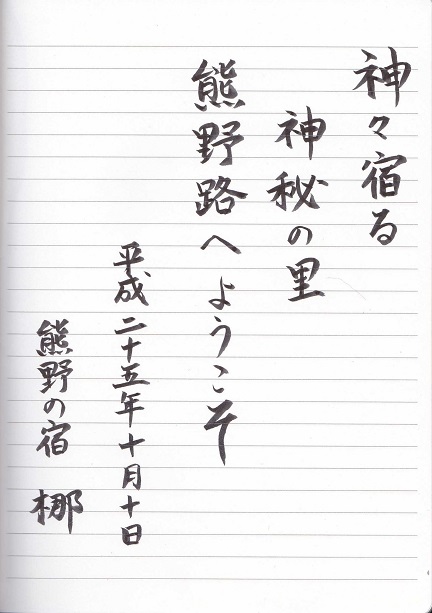 神々宿る
神秘の里
熊野路へようこそ
平成二十五年十月十日
熊野の宿 梛